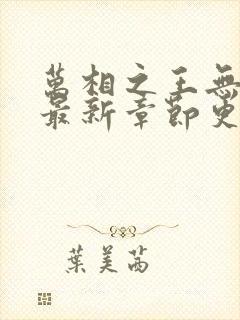 萬相之王無
最新章節更
葉美茜